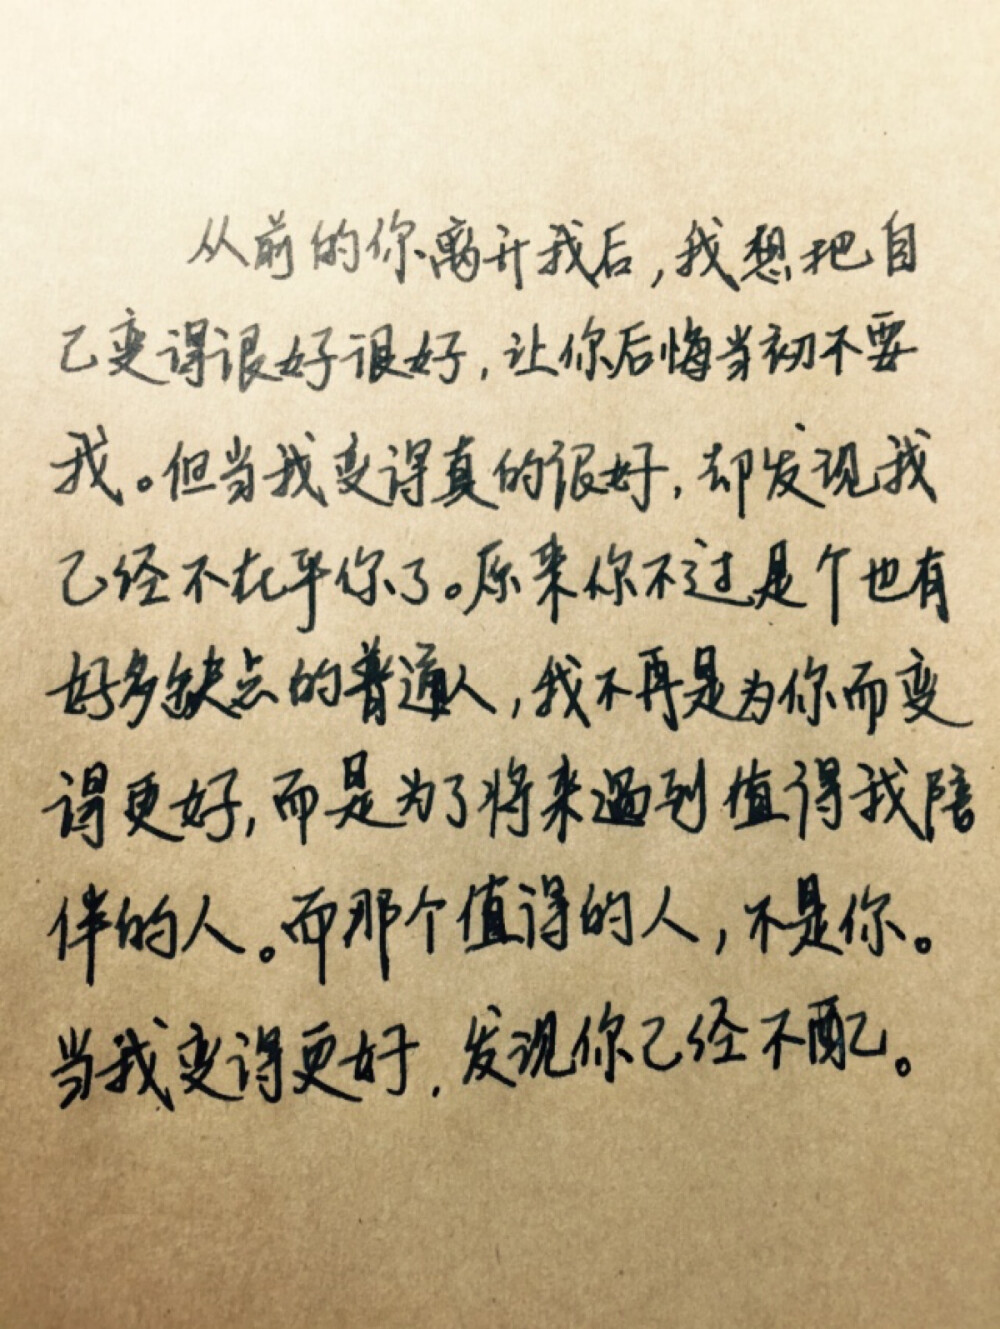 从前的你离开我后,我想把自
己变得很好很好,让你后悔当初不要
我。但当我变得真的很好,却发现我
已经不在乎你了。原来你不过是个也有
好多缺点的普通人,我不再是为你而变
得更好,而是为了将来遇到值得我陪
伴的人。而那个值得的人,不是你。
当我变得更好,发现你已经不配。